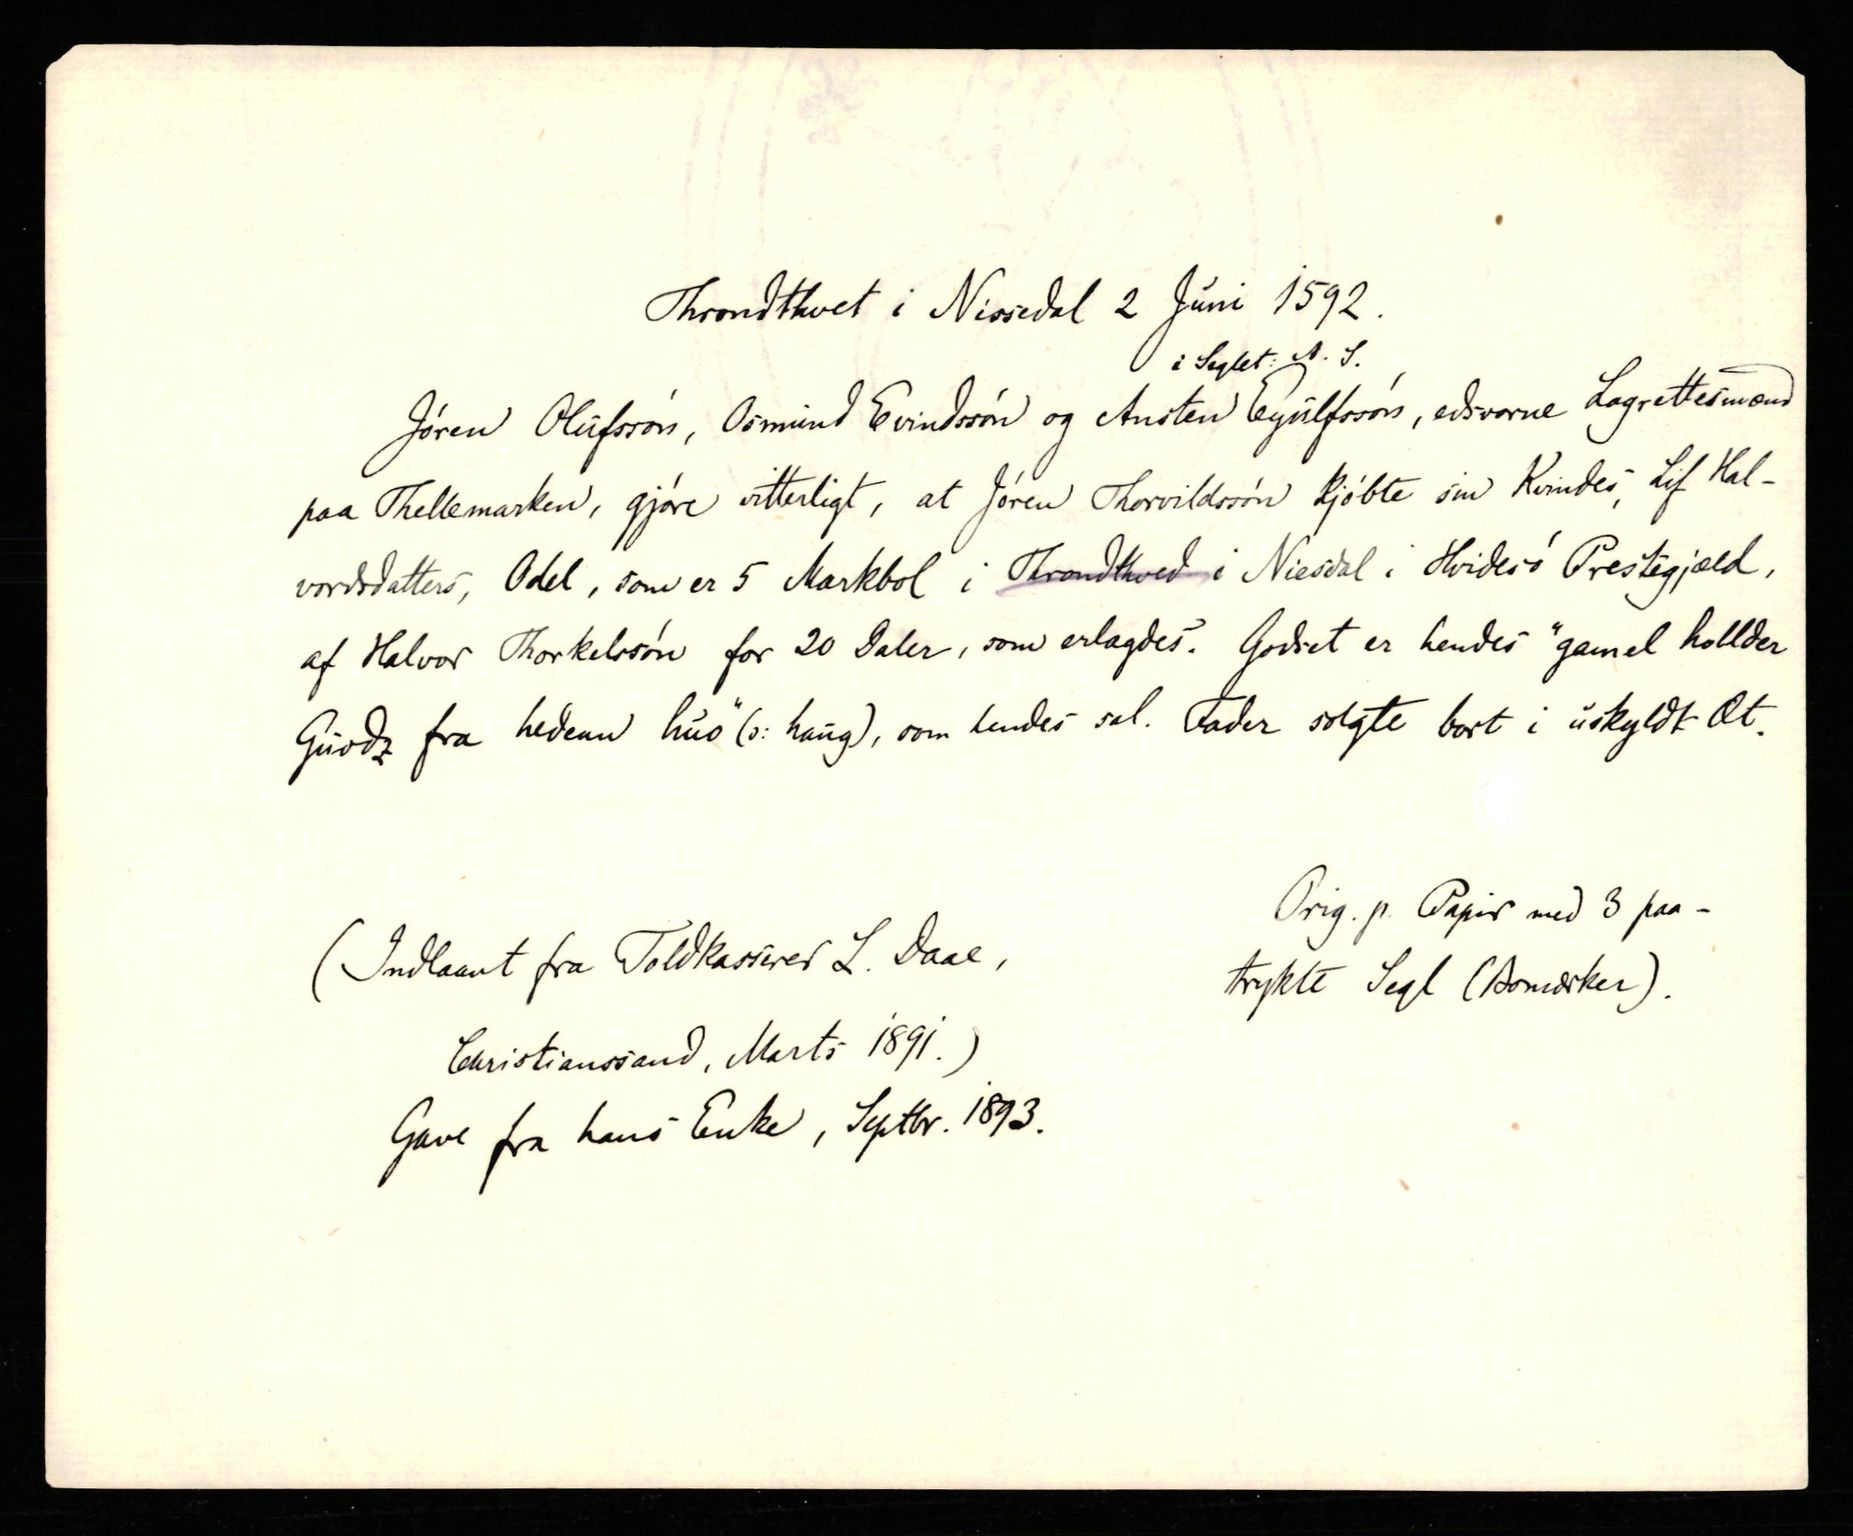 Throndthvet i Nissedal 2 Juni 1592.
i Seglet: A. S.
Jøren Olufssøn, Osmund Evindssøn og Austen Eyulfssøn, edsvorne Lagrettesmænd
paa Thellemarken, gjøre vitterligt, at Jøren Thorvildssøn kjøbte sin Kvindes, Lif Hal-
vordsdatters, Odel, som er 5 Markbol i Throndthved i Niesdal i Hvidesø Prestegjæld,
af Halvor Thorkelssøn for 20 Daler, som erlagdes. Godset er hendes "gamel hollder
Guodz fra hedenn huo" (ɔ: haug), som hendes sal. Fader solgte bort i uskyldt Æt.
Orig. p. Papir med 3 paa-
trykte Segl (Bomærker).
(Indlaant fra Toldkasserer L. Daae,
Christianssand, Marts 1891.)
Gave fra hans Enke, Septbr. 1893.